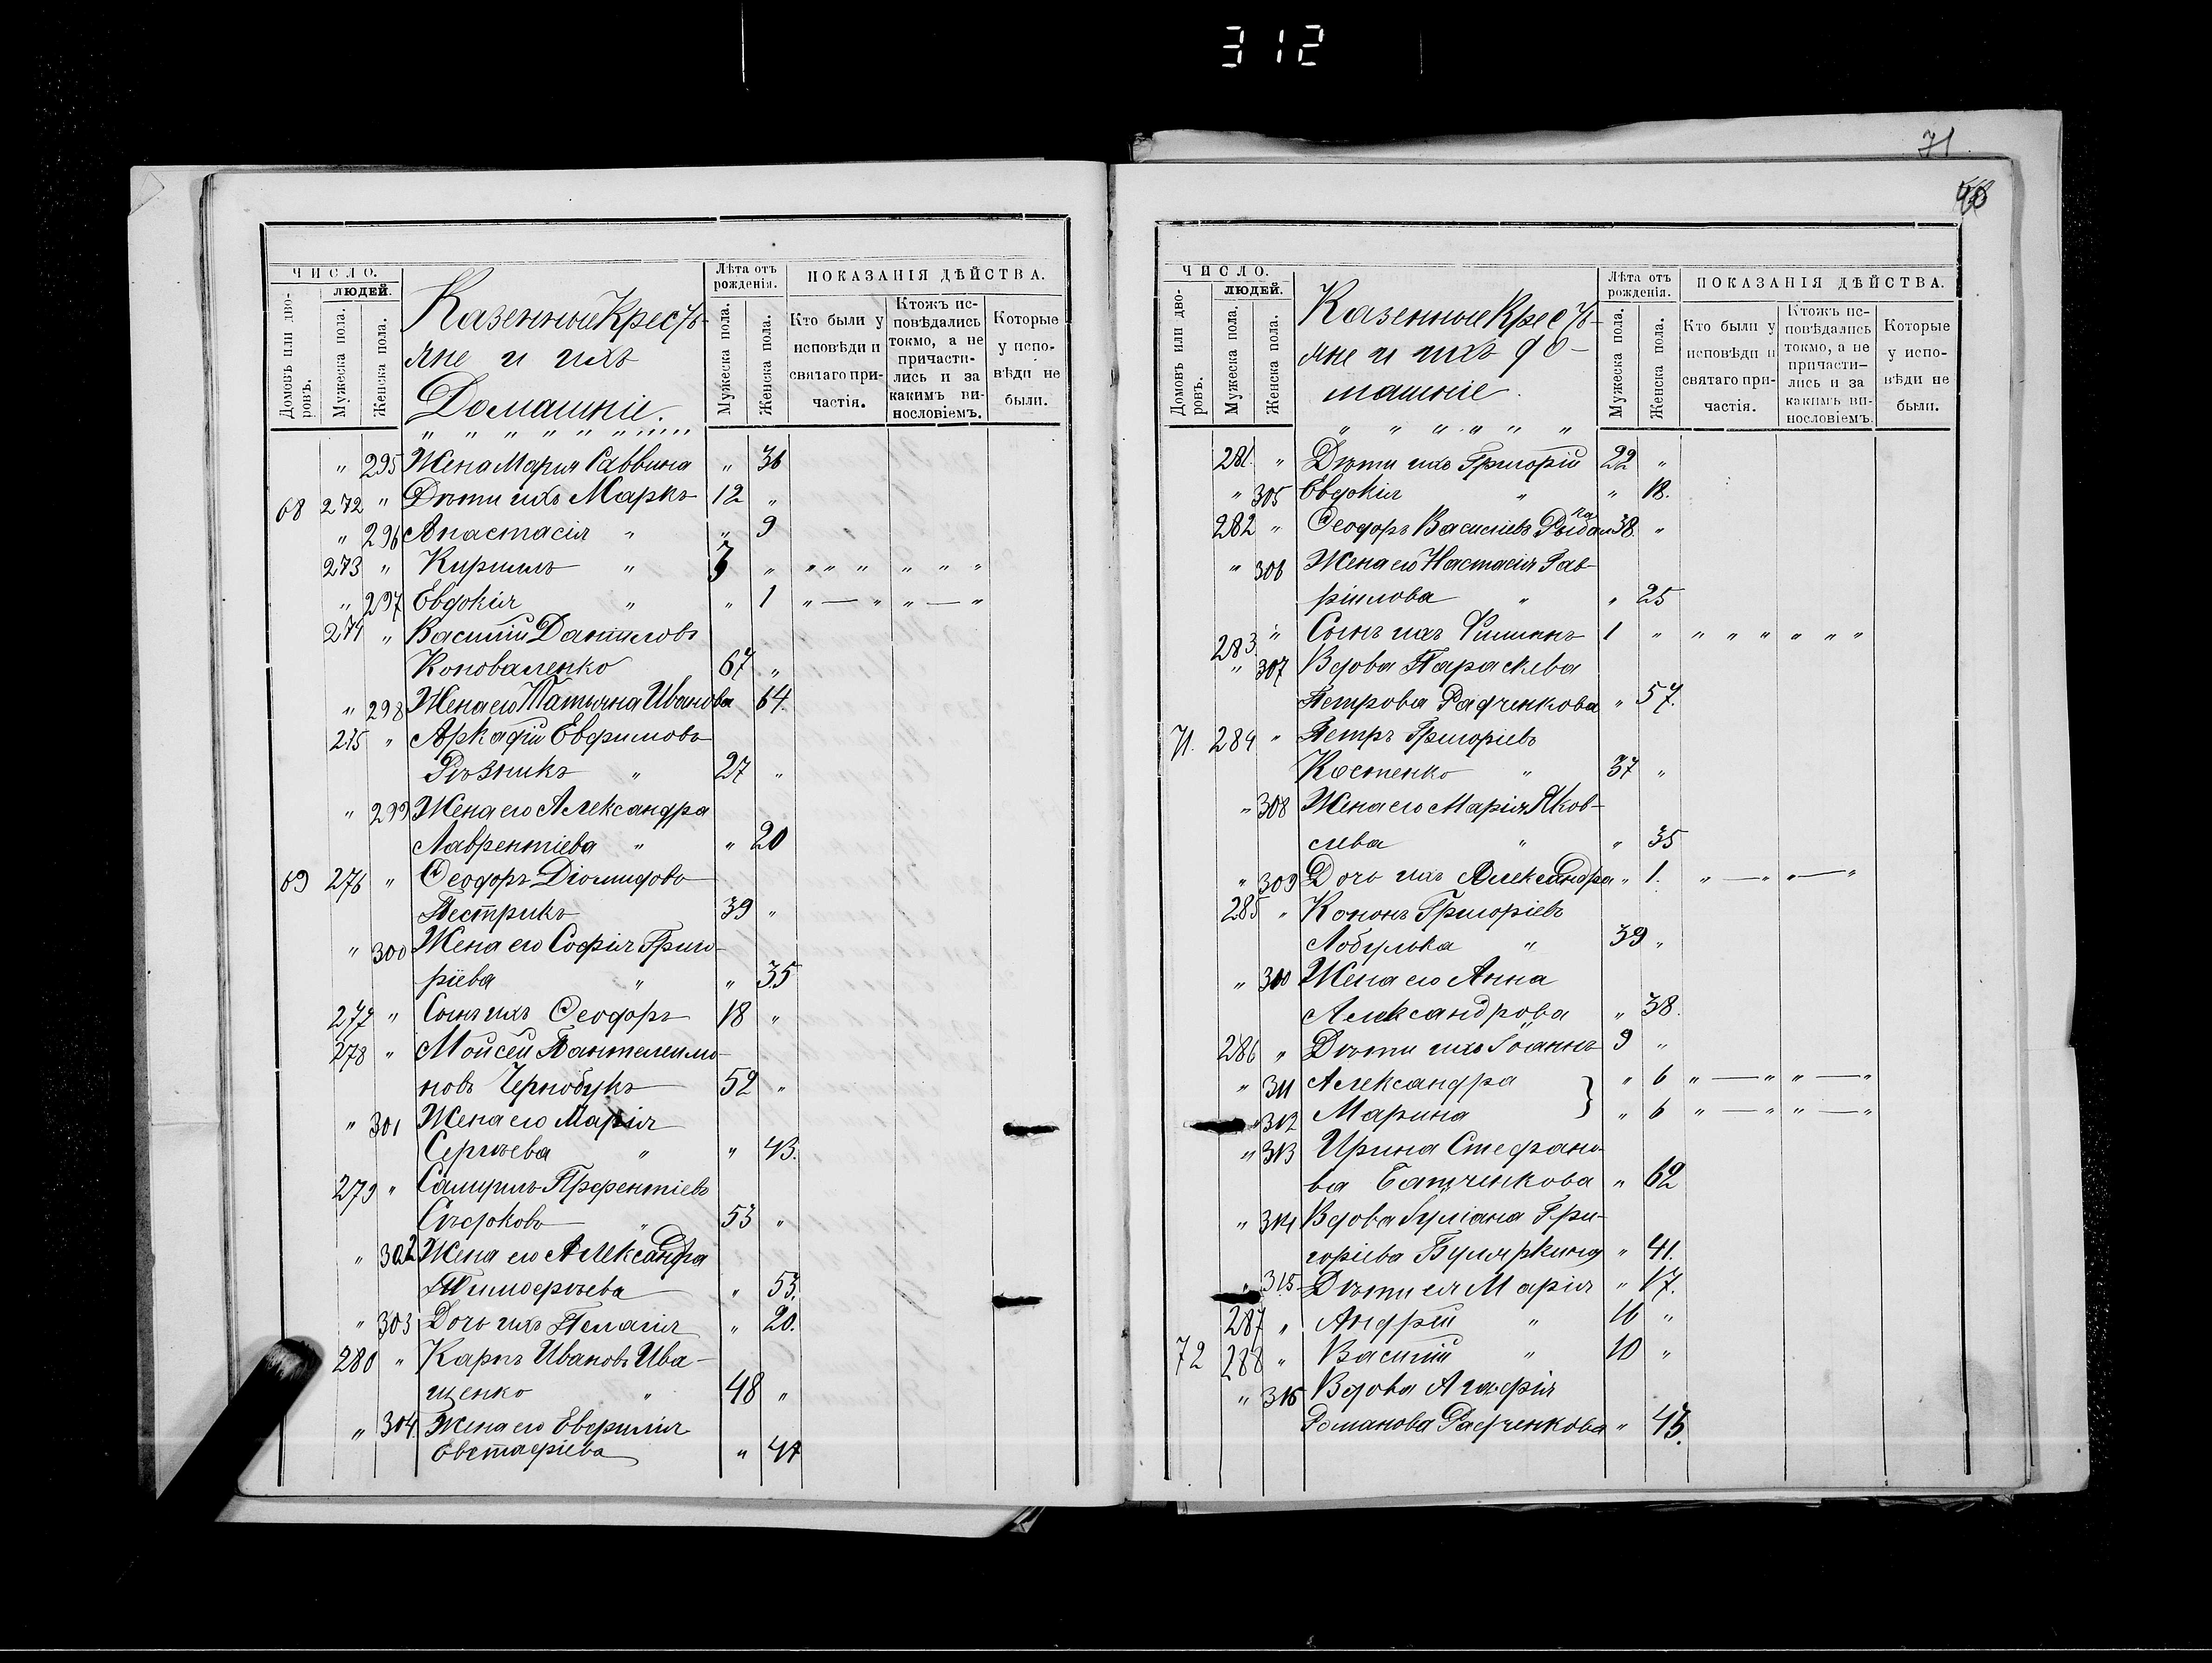 312
71
ЧИСЛО.
ЛЮДЕЙ.
Домовъ или дворовъ.
Мужеска пола.
Женска пола.
Казенные Крестьяне и ихъ
Домашніе.
Лѣта отъ рожденія.
Мужеска пола.
Женска пола.
ПОКАЗАНІЯ ДѢЙСТВА.
Кто были у исповѣди и святаго причастія.
Ктожъ исповѣдались токмо, а не причастились и за какимъ винословіемъ.
Которые у исповѣди не были.
" 295 Жена Марія Саввина " 36
68 272 " Дѣти ихъ Маркъ 12 "
" 296 Анастасія " " 9
273 " Кириллъ " 3 " " " " " " "
" 297 Евдокія " " 1 " — " " — "
274 " Василій Даниловъ
Коноваленко 67 "
" 298 Жена его Татьяна Иванова 64.
275 " Аркадій Евфимовъ
Рѣзникъ " 27 "
" 299 Жена его Александра
Лаврентіева " " 20
69 276 " Ѳеодоръ Діомидовъ
Пестрикъ 39 "
" 300 Жена его Софія Григо-
ріева " " 35
277 " Сынъ ихъ Ѳеодоръ 18 "
278 " Моисей Пантелеимо-
новъ Чернобукъ 52 "
" 301 Жена его Марія
Сергѣева " " 43.
279 " Самуилъ
Сѣдоковъ " 53 "
" 302 Жена его Александра
Тимоѳѣева " 53.
" 303 Дочь ихъ Пелагія " 20.
280 " Карпъ Ивановъ Ива-
щенко " 48 "
" 304 Жена его Евфимія
Евстафіева " 47
ЧИСЛО.
ЛЮДЕЙ.
Домовъ или дворовъ.
Мужеска пола.
Женска пола.
Казенные Кресть-
яне и ихъ до-
машніе.
Лѣта отъ рожденія.
Мужеска пола.
Женска пола.
ПОКАЗАНІЯ ДѢЙСТВА.
Кто были у исповѣди и святаго причастія.
Ктожъ исповѣдались токмо, а не причастились и за какимъ винословіемъ.
Которые у исповѣди не были.
281. " Дѣти ихъ Григорій 22 "
" 305 Евдокія " " 18.
282 " Ѳеодоръ Васильевъ 38. "
" 306 Жена его Настасія Гав-
ріилова " " 25
283 " Сынъ ихъ 1 " " " " " " "
" 307 Вдова Параскева
Петрова Радченкова " 57.
71. 284 " Петръ Григоріевъ
Костенко " 37 "
" 308 Жена его Марія Яков-
лева " " 35
" 309 Дочь ихъ Александра " 1. " — " " — "
285 " Кононъ Григоріевъ
Лобулька " 39 "
" 300 Жена его Анна
Александрова " 38.
286 " Дѣти ихъ Іоаннъ 9 "
" 311 Александра " 6 " — " " — "
" 312 Марина " 6 " — " " — "
" 313 Ирина Стефано-
ва Батченкова " 62
" 314 Вдова Іуліана Гри-
горіева " 41.
" 315 Дѣти ея Марія " 17.
287 " Андрей " 16 "
72 288 " Василій " 10 "
" 316 Вдова Агафія
Романова Радченкова " 45.